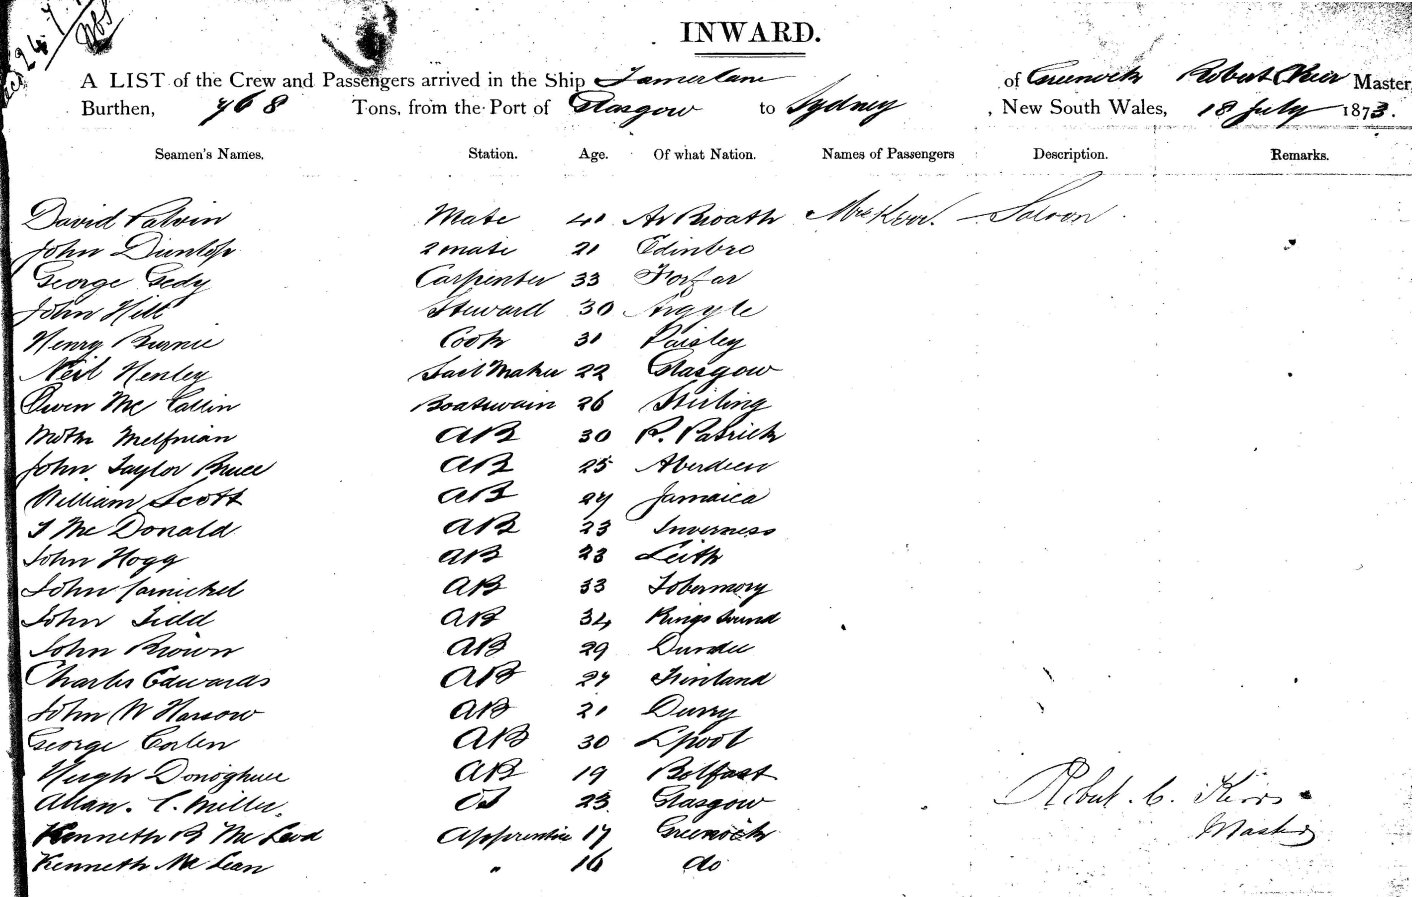 INWARD.
A LIST of the Crew and Passengers arrived in the Ship Tamerlane of Greenock Robert Kerr Master,
Burthen, 768 Tons, from the Port of Glasgow to Sydney, New South Wales, 18 July 1873.
Seamen's Names. Station. Age. Of what Nation. Names of Passengers Description. Remarks.
David Mate 41 Ar Broath Mrs Kerr. Saloon
John Dunlop 2 mate 21 Edinbro
George Gedy Carpenter 33 Forfar
John Hill Steward 30 Argyle
Henry Burnie Cook 31 Paisley
Neil Henley Sail Maker 22 Glasgow
Owen Mc Callin Boatswain 26 Stirling
AB 30 P. Patrick
John Taylor Bruce AB 25 Aberdeen
William Scott AB 27 Jamaica
J Mc Donald AB 23 Inverness
John Hogg AB 23 Leith
John Carnickel AB 33 Tobermory
John Tidd AB 34 Kings Sound
John Brown AB 29 Dundee
Charles Edwards AB 27 Finland
John W Harsow AB 21 Durry
George Corlen AB 30 Lpool
Hugh Donoghue AB 19 Belfast
Allan. C. Miller OS 23 Glasgow
Kenneth B Mc Leod Apprentice 17 Greenock
Kenneth Mc Lean " 16 do
Robert. C. Kerr
Master